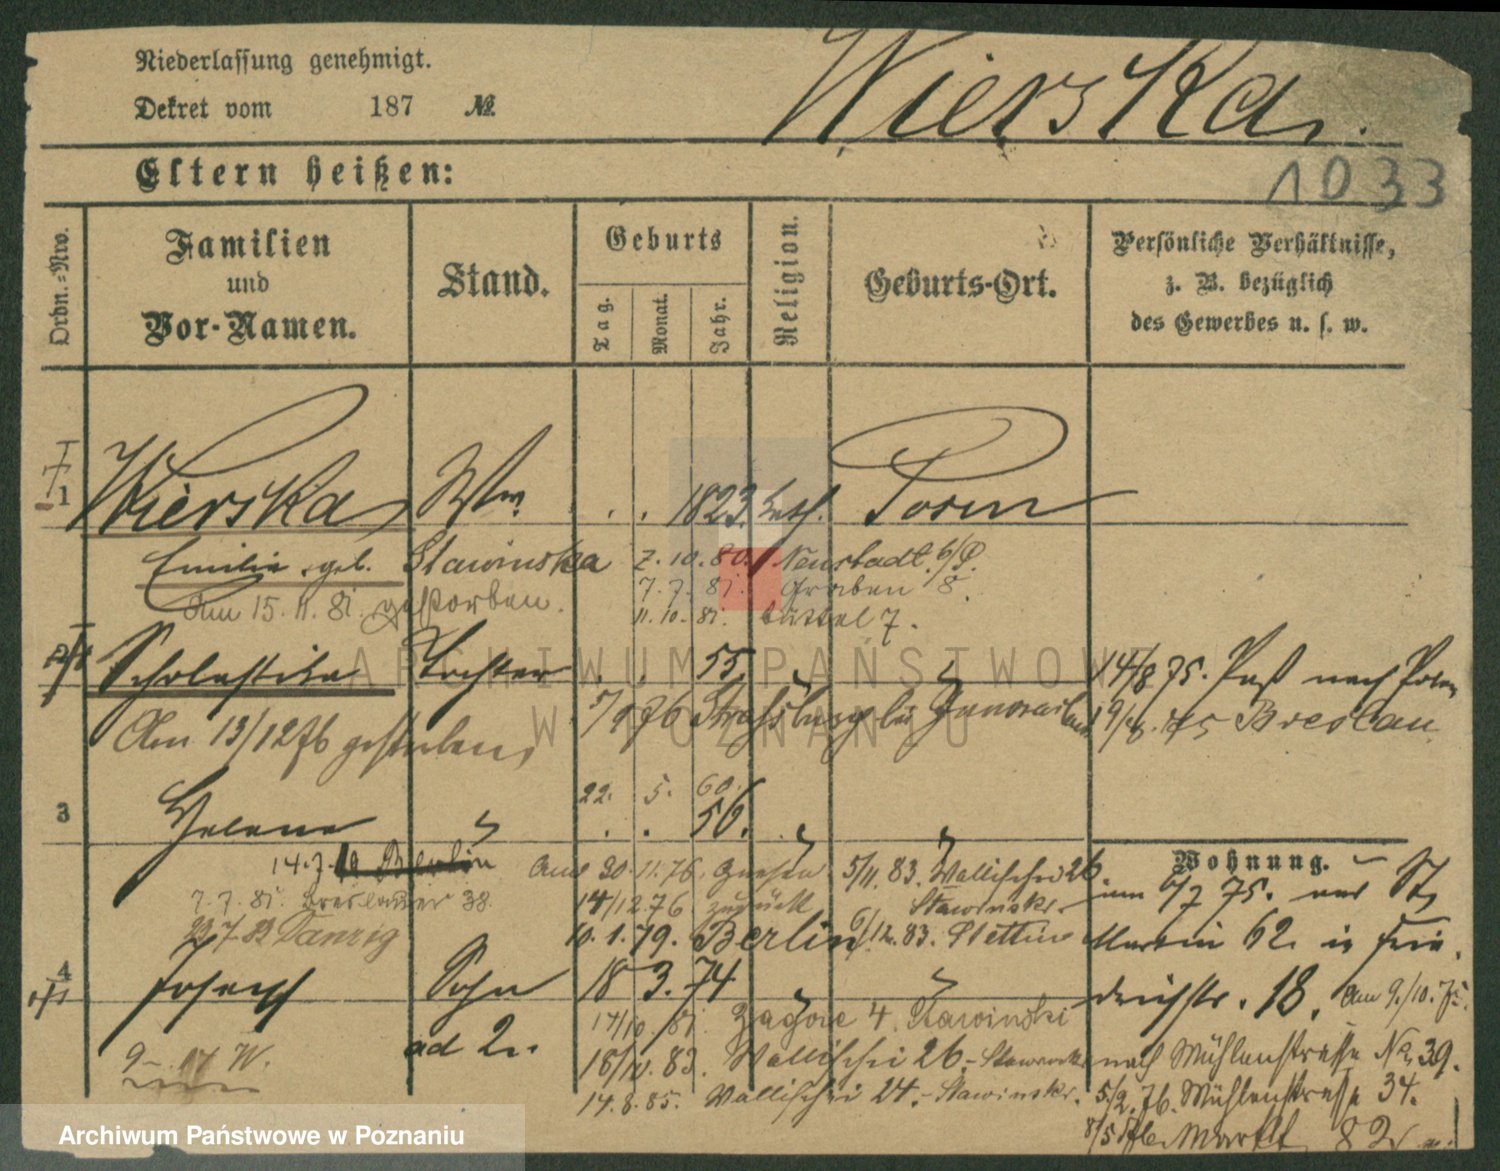 Niederlassung genehmigt.
Dekret vom 187 №
Wierska.
1033
Eltern heißen:
Ordn.=Nro.
Familien
und
Vor-Namen.
Stand.
Geburts
Tag.
Monat.
Jahr.
Religion.
Geburts-Ort.
Persönliche Verhältnisse,
z. B. bezüglich
des Gewerbes u. s. w.
1 Wierska Ww. . . 1823 kath. Posen
Emilie geb. Stawinska 2.10.80. Neustadt. b/P.
7.7.81. Graben 8.
Am 15.11.81. gestorben. 11.10.81. Büttel 7.
2 Scholastika Tochter . . 55 14/8 75. Paß nach Polen
5/9 76 Strassburg bei 19/8. 75 Breslau
Am 13/12 76 gestorben
22. 5. 60.
3 Helene . . 56.
Wohnung.
14.7.79 Berlin Am 30.11.76. Gnesen 5/11.83. Wallischei 26
7.7.81. Breslauer 38. 14/12 76 zurück Stawinski. 6/7 75. St
22/7 82 Danzig 10.1.79. Berlin 6/12.83. Stettin Martin 62. in Frie
4 Joseph Sohn 18 3. 74 drichstr. 18. Am 9./10.75.
17/10. 81. Zagorze 4. Stawinski
ad 2.
18/11.83. Wallischei 26.- nach Mühlenstrasse No. 39.
14.8.85. Wallischei 24.- Stawinski. 5/2.76. Mühlenstrasse 34.
8/5 Markt 82
ARCHIWUM PAŃSTWOWE
W POZNANIU
Archiwum Państwowe w Poznaniu